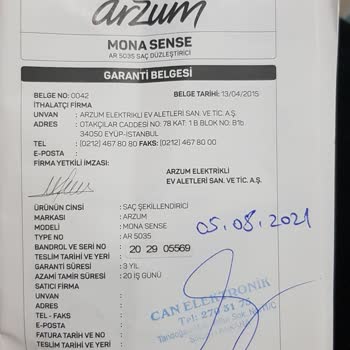 arzum
MONA SENSE
AR 5035 SAÇ DÜZLEŞTİRİCİ
GARANTİ BELGESİ
BELGE NO: 0042 BELGE TARİHİ: 13/04/2015
İTHALATÇI FİRMA
UNVAN : ARZUM ELEKTRİKLİ EV ALETLERİ SAN. VE TİC. A.Ş.
ADRES : OTAKÇILAR CADDESİ NO: 78 KAT: 1 B BLOK NO: B1b
34050 EYÜP-İSTANBUL
TEL : (0212) 467 80 80 FAKS: (0212) 467 80 00
E-POSTA :
FİRMA YETKİLİ İMZASI: ARZUM ELEKTRİKLİ
EV ALETLERİ SAN. VE TİC. A.Ş.
ÜRÜNÜN CİNSİ : SAÇ ŞEKİLLENDİRİCİ
MARKASI : ARZUM
MODELİ : MONA SENSE
TYPE NO : AR 5035
05.08.2021
BANDROL VE SERİ NO : 20 29 05569
TESLİM TARİHİ VE YERİ :
GARANTİ SÜRESİ : 3 YIL
AZAMİ TAMİR SÜRESİ : 20 İŞ GÜNÜ
SATICI FİRMA
UNVAN :
ADRES :
TEL - FAKS :
E-POSTA :
FATURA TARİH VE NO :
TESLİM TARİHİ VE YERİ
CAN ELEKTRONİK
Tel: 279 51 75